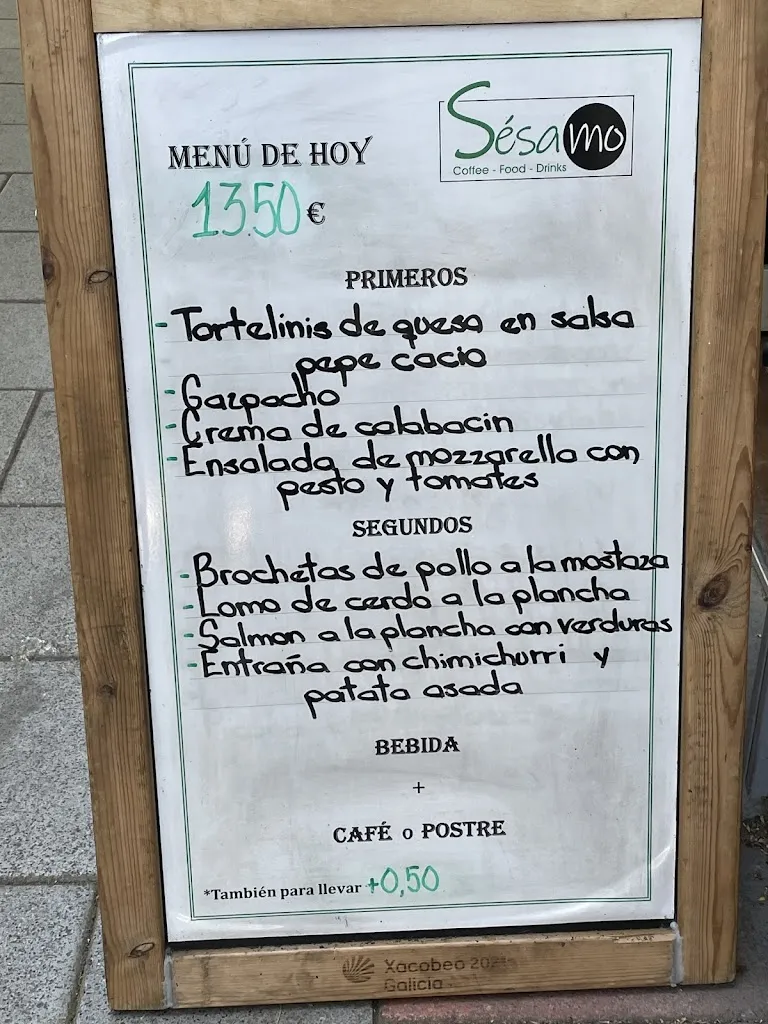 Sésamo
Coffee - Food - Drinks
MENÚ DE HOY
1350€
PRIMEROS
- Tortelinis de queso en salsa
pepe cacio
- Gazpacho
- Crema de calabacin
- Ensalada de mozzarella con
pesto y tomates
SEGUNDOS
- Brochetas de pollo a la mostaza
- Lomo de cerdo a la plancha
- Salmon a la plancha con verduras
- Entraña con chimichurri y
patata asada
BEBIDA
+
CAFÉ o POSTRE
*También para llevar +0,50
Xacobeo 2021
Galicia